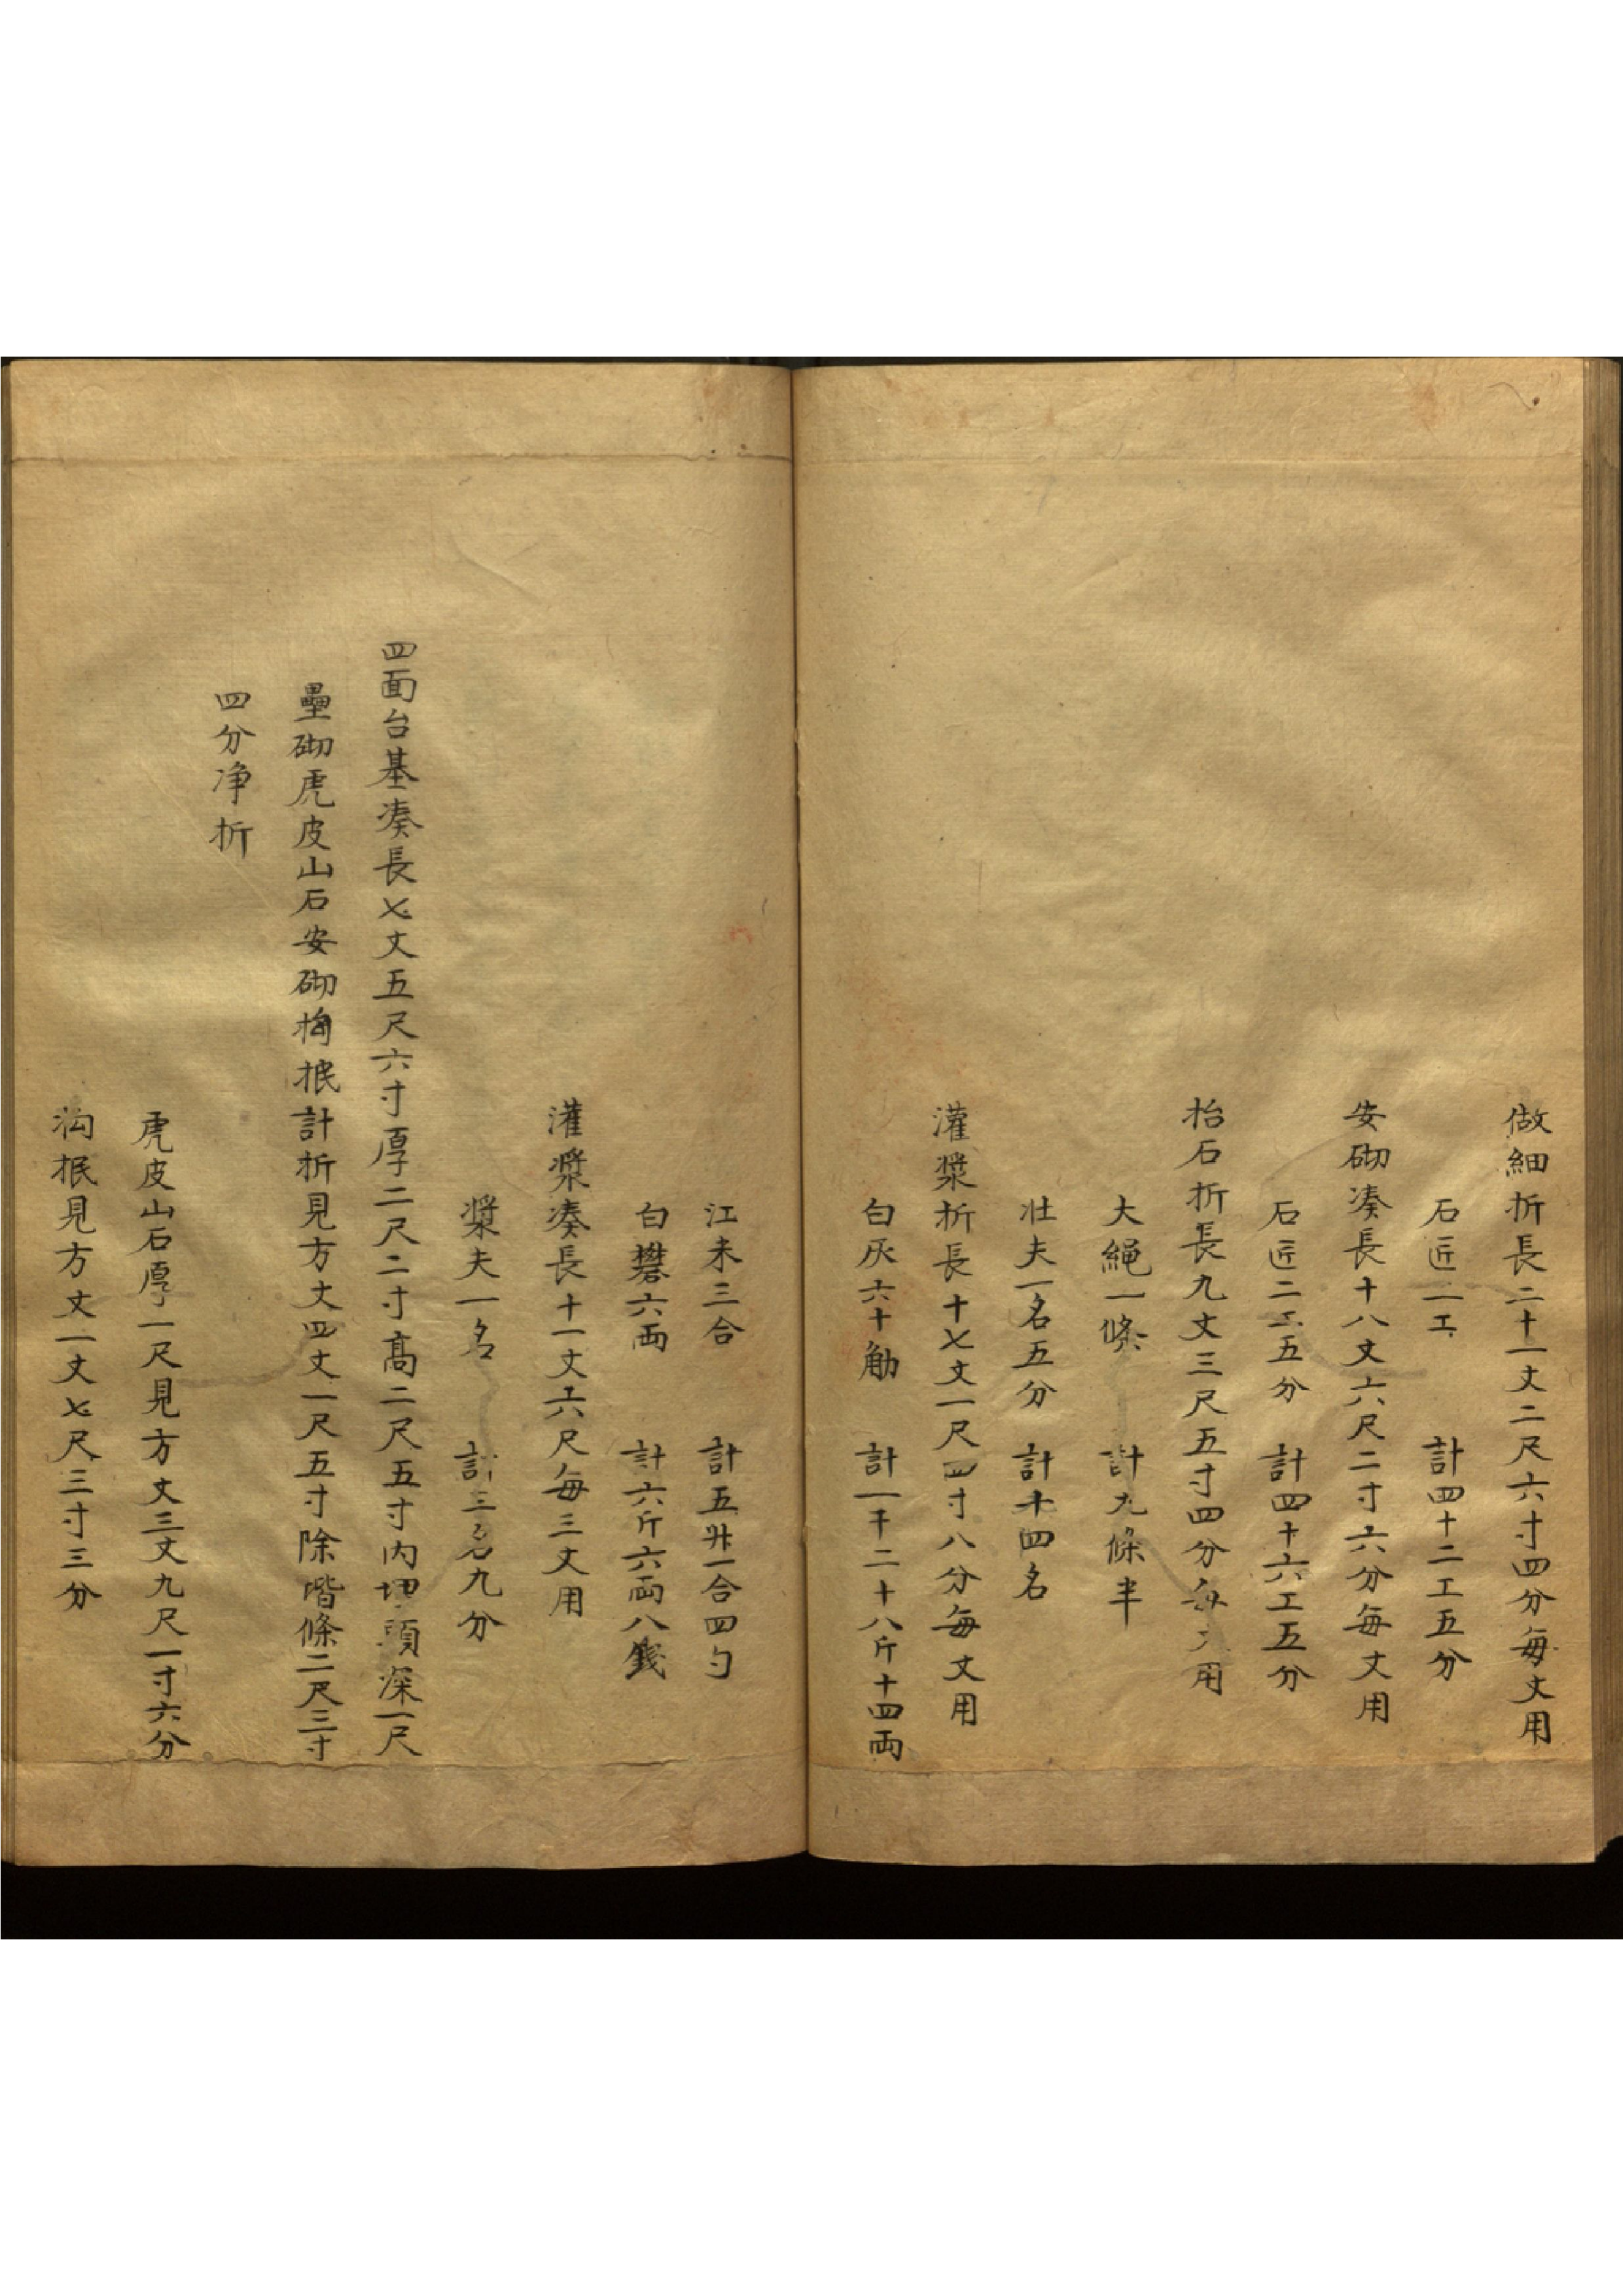 做細折長二十一丈二尺六寸四分每丈用
石匠二工 計四十二工五分
安砌湊長十八丈六尺二寸六分每丈用
石匠二工五分 計四十六工五分
抬石折長九丈三尺五寸四分每丈用
大繩一條 計九條半
壮夫一名五分 計十四名
灌漿折長十七丈一尺四寸八分每丈用
白灰六十觔 計一千二十八斤十四両
江米三合 計五升一合四勺
白礬六両 計六斤六両八錢
灌漿湊長十一丈六尺每三丈用
漿夫一名 計三名九分
四面台基湊長七丈五尺六寸厚二尺二寸高二尺五寸内埋頭深一尺
壘砌虎皮山石安砌搆抿計折見方丈四丈一尺五寸除階條二尺三寸
四分净折
虎皮山石厚一尺見方丈三丈九尺一寸六分
沟抿見方丈一丈七尺三寸三分